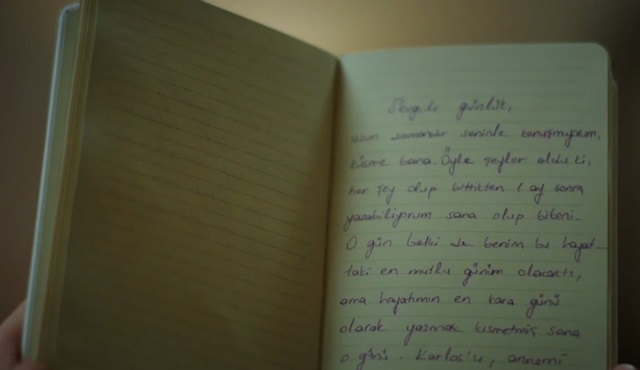 Sevgili günlük,
uzun zamandır seninle konuşmuyorum,
küsme bana. Öyle şeyler oldu ki,
her şey olup bittikten 1 ay sonra
yazabiliyorum sana olup biteni.
O gün belki de benim bu hayat-
taki en mutlu günüm olacaktı,
ama hayatımın en kara günü
olarak yazmak kısmetmiş sana
o günü. Karlos'u, annemi